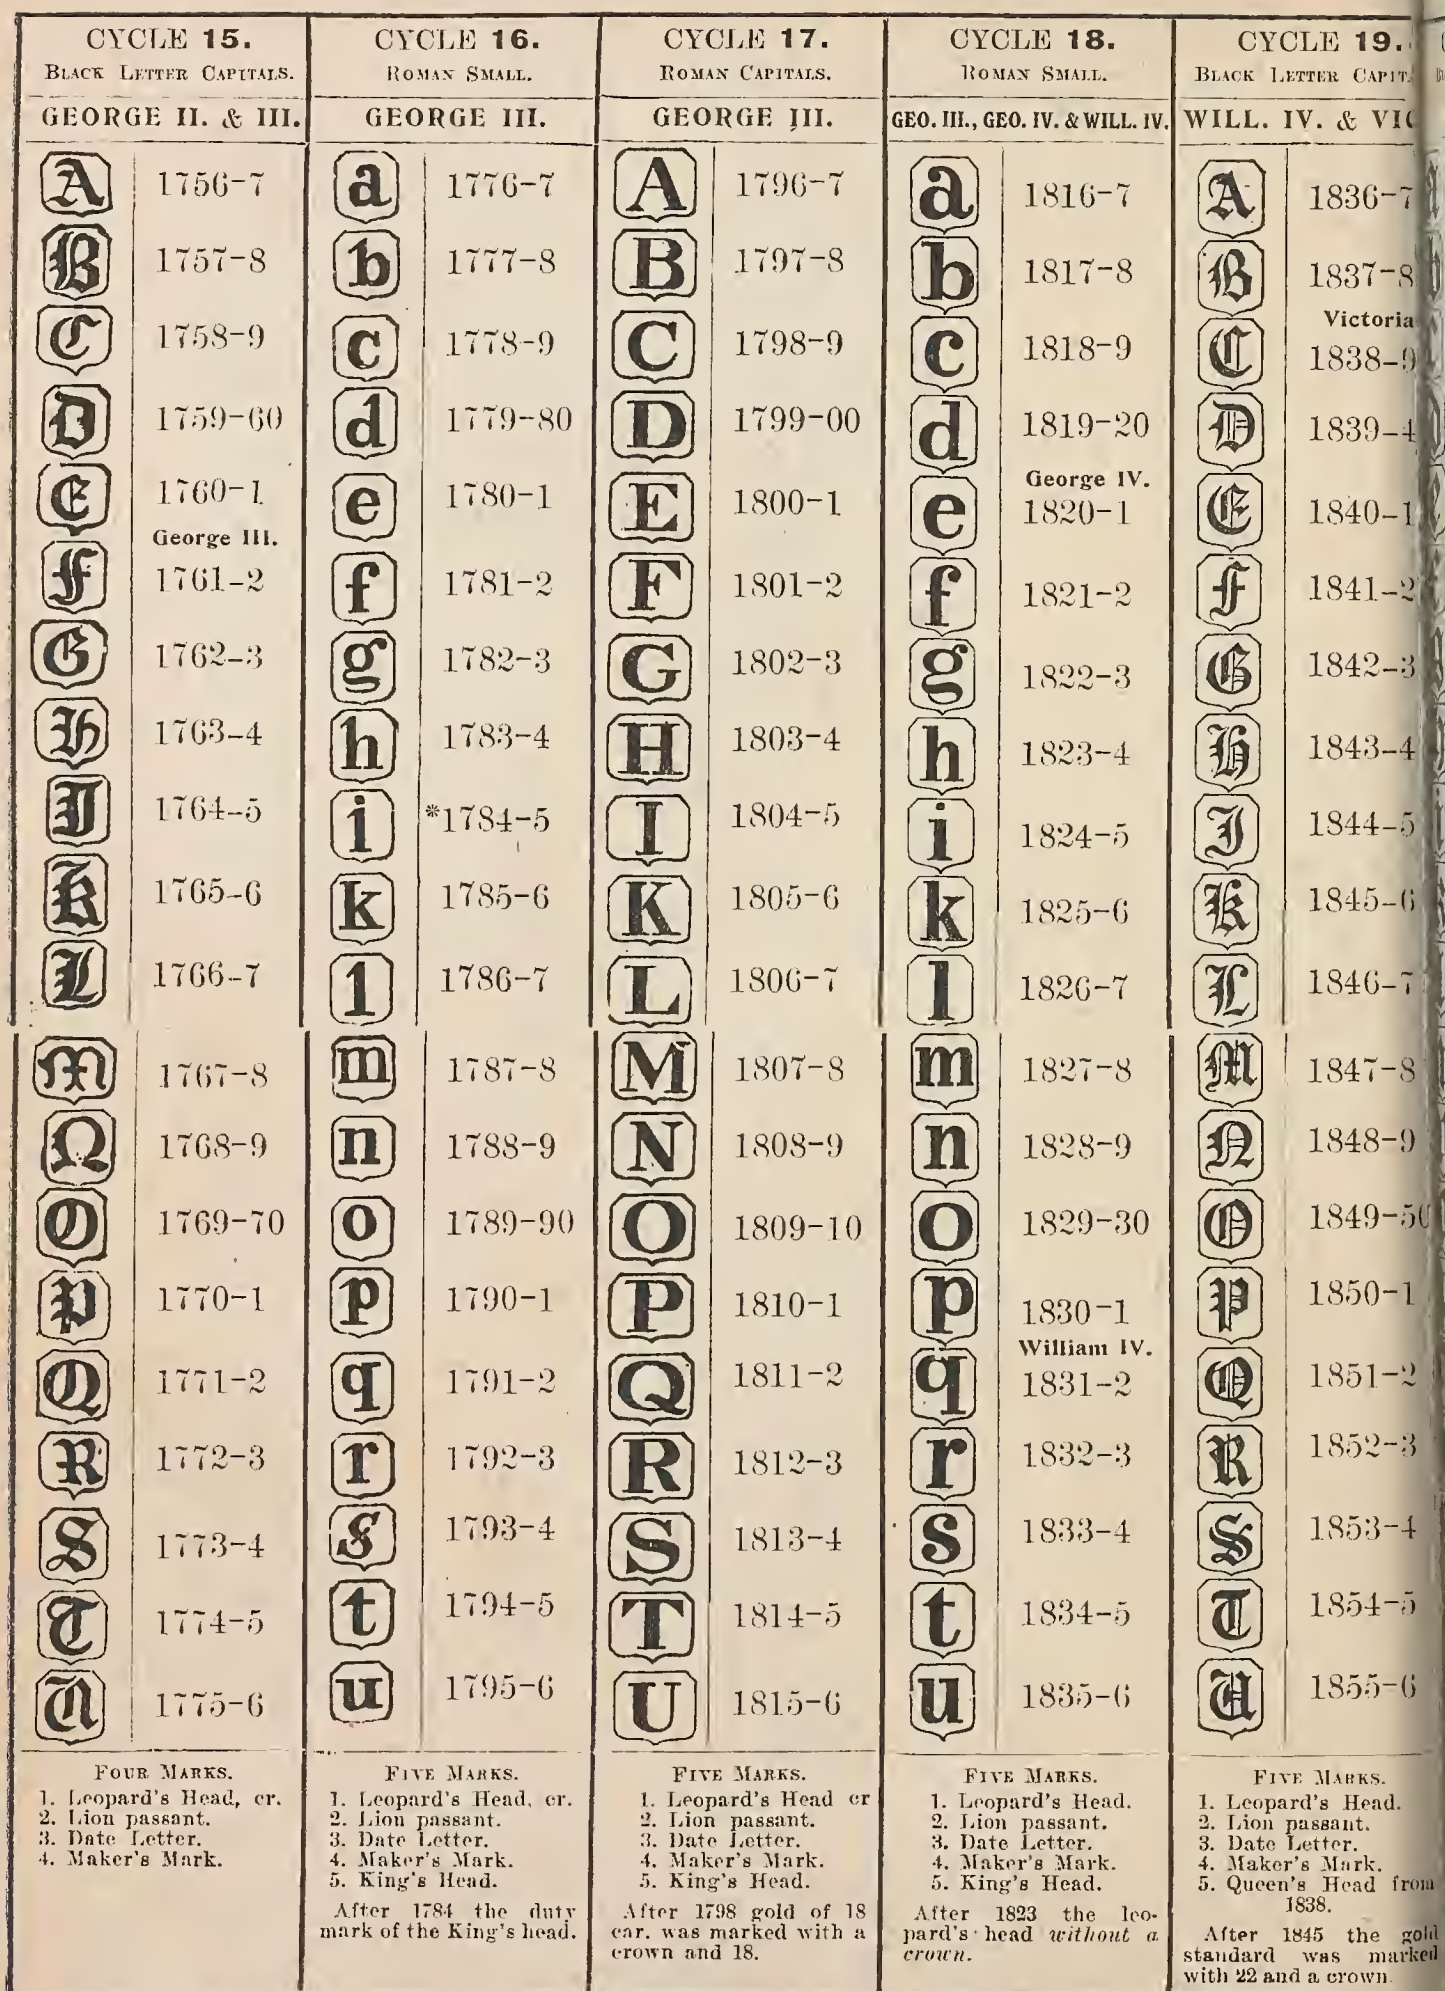 CYCLE 15.
BLACK LETTER CAPITALS.
GEORGE II. & III.
A 1756-7
B 1757-8
C 1758-9
D 1759-60
E 1760-1
George III.
F 1761-2
G 1762-3
H 1763-4
I 1764-5
K 1765-6
L 1766-7
M 1767-8
N 1768-9
O 1769-70
P 1770-1
Q 1771-2
R 1772-3
S 1773-4
T 1774-5
U 1775-6
FOUR MARKS.
1. Leopard's Head, cr.
2. Lion passant.
3. Date Letter.
4. Maker's Mark.
CYCLE 16.
ROMAN SMALL.
GEORGE III.
a 1776-7
b 1777-8
c 1778-9
d 1779-80
e 1780-1
f 1781-2
g 1782-3
h 1783-4
i *1784-5
k 1785-6
l 1786-7
m 1787-8
n 1788-9
o 1789-90
p 1790-1
q 1791-2
r 1792-3
s 1793-4
t 1794-5
u 1795-6
FIVE MARKS.
1. Leopard's Head, cr.
2. Lion passant.
3. Date Letter.
4. Maker's Mark.
5. King's Head.
After 1784 the duty
mark of the King's head.
CYCLE 17.
ROMAN CAPITALS.
GEORGE III.
A 1796-7
B 1797-8
C 1798-9
D 1799-00
E 1800-1
F 1801-2
G 1802-3
H 1803-4
I 1804-5
K 1805-6
L 1806-7
M 1807-8
N 1808-9
O 1809-10
P 1810-1
Q 1811-2
R 1812-3
S 1813-4
T 1814-5
U 1815-6
FIVE MARKS.
1. Leopard's Head cr
2. Lion passant.
3. Date Letter.
4. Maker's Mark.
5. King's Head.
After 1798 gold of 18
car. was marked with a
crown and 18.
CYCLE 18.
ROMAN SMALL.
GEO. III., GEO. IV. & WILL. IV.
a 1816-7
b 1817-8
c 1818-9
d 1819-20
George IV.
e 1820-1
f 1821-2
g 1822-3
h 1823-4
i 1824-5
k 1825-6
l 1826-7
m 1827-8
n 1828-9
o 1829-30
p 1830-1
William IV.
q 1831-2
r 1832-3
s 1833-4
t 1834-5
u 1835-6
FIVE MARKS.
1. Leopard's Head.
2. Lion passant.
3. Date Letter.
4. Maker's Mark.
5. King's Head.
After 1823 the leo-
pard's head without a
crown.
CYCLE 19.
BLACK LETTER CAPIT
WILL. IV. & VIC
A 1836-7
B 1837-8
Victoria
C 1838-9
D 1839-4
E 1840-1
F 1841-2
G 1842-3
H 1843-4
I 1844-5
K 1845-6
L 1846-7
M 1847-8
N 1848-9
O 1849-50
P 1850-1
Q 1851-2
R 1852-3
S 1853-4
T 1854-5
U 1855-6
FIVE MARKS.
1. Leopard's Head.
2. Lion passant.
3. Date Letter.
4. Maker's Mark.
5. Queen's Head from
1838.
After 1845 the gold
standard was marked
with 22 and a crown.